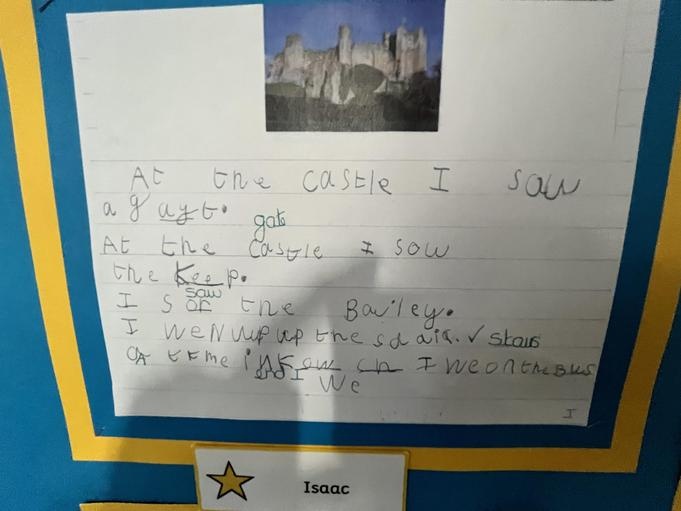 At the castle I saw
a gayt.
gate
At the castle I sow
the Keep.
saw
I sor the Bailey.
I weNupup the sdair. ✓ stairs
I weontheBus
We
I
Isaac